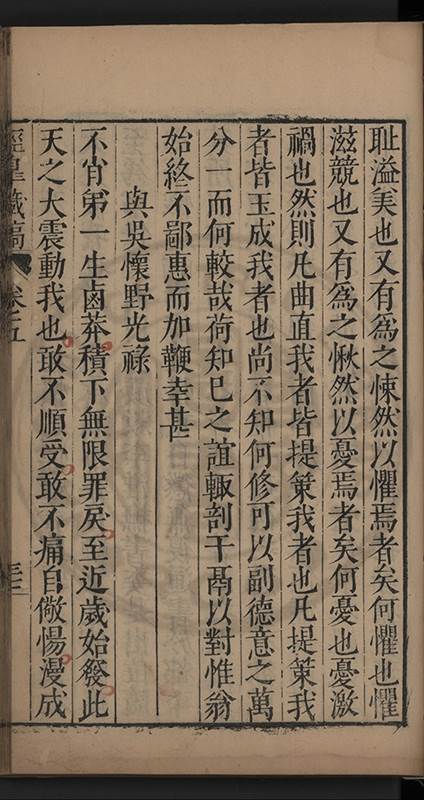 耻溢美也又有爲之悚然以懼焉者矣何懼也懼
滋競也又有爲之愀然以憂焉者矣何憂也憂激
禍也然則凡曲直我者皆提策我者也凡提策我
者皆玉成我者也尚不知何修可以副德意之萬
分一而何較哉荷知巳之誼輙剖干鬲以對惟翁
始終不鄙惠而加鞭幸甚
與吳懷野光祿
不肖弟一生鹵莽積下無限罪戾至近歲始發此
天之大震動我也敢不順受敢不痛自儆惕漫成
涇臯藏稿 卷之五 三